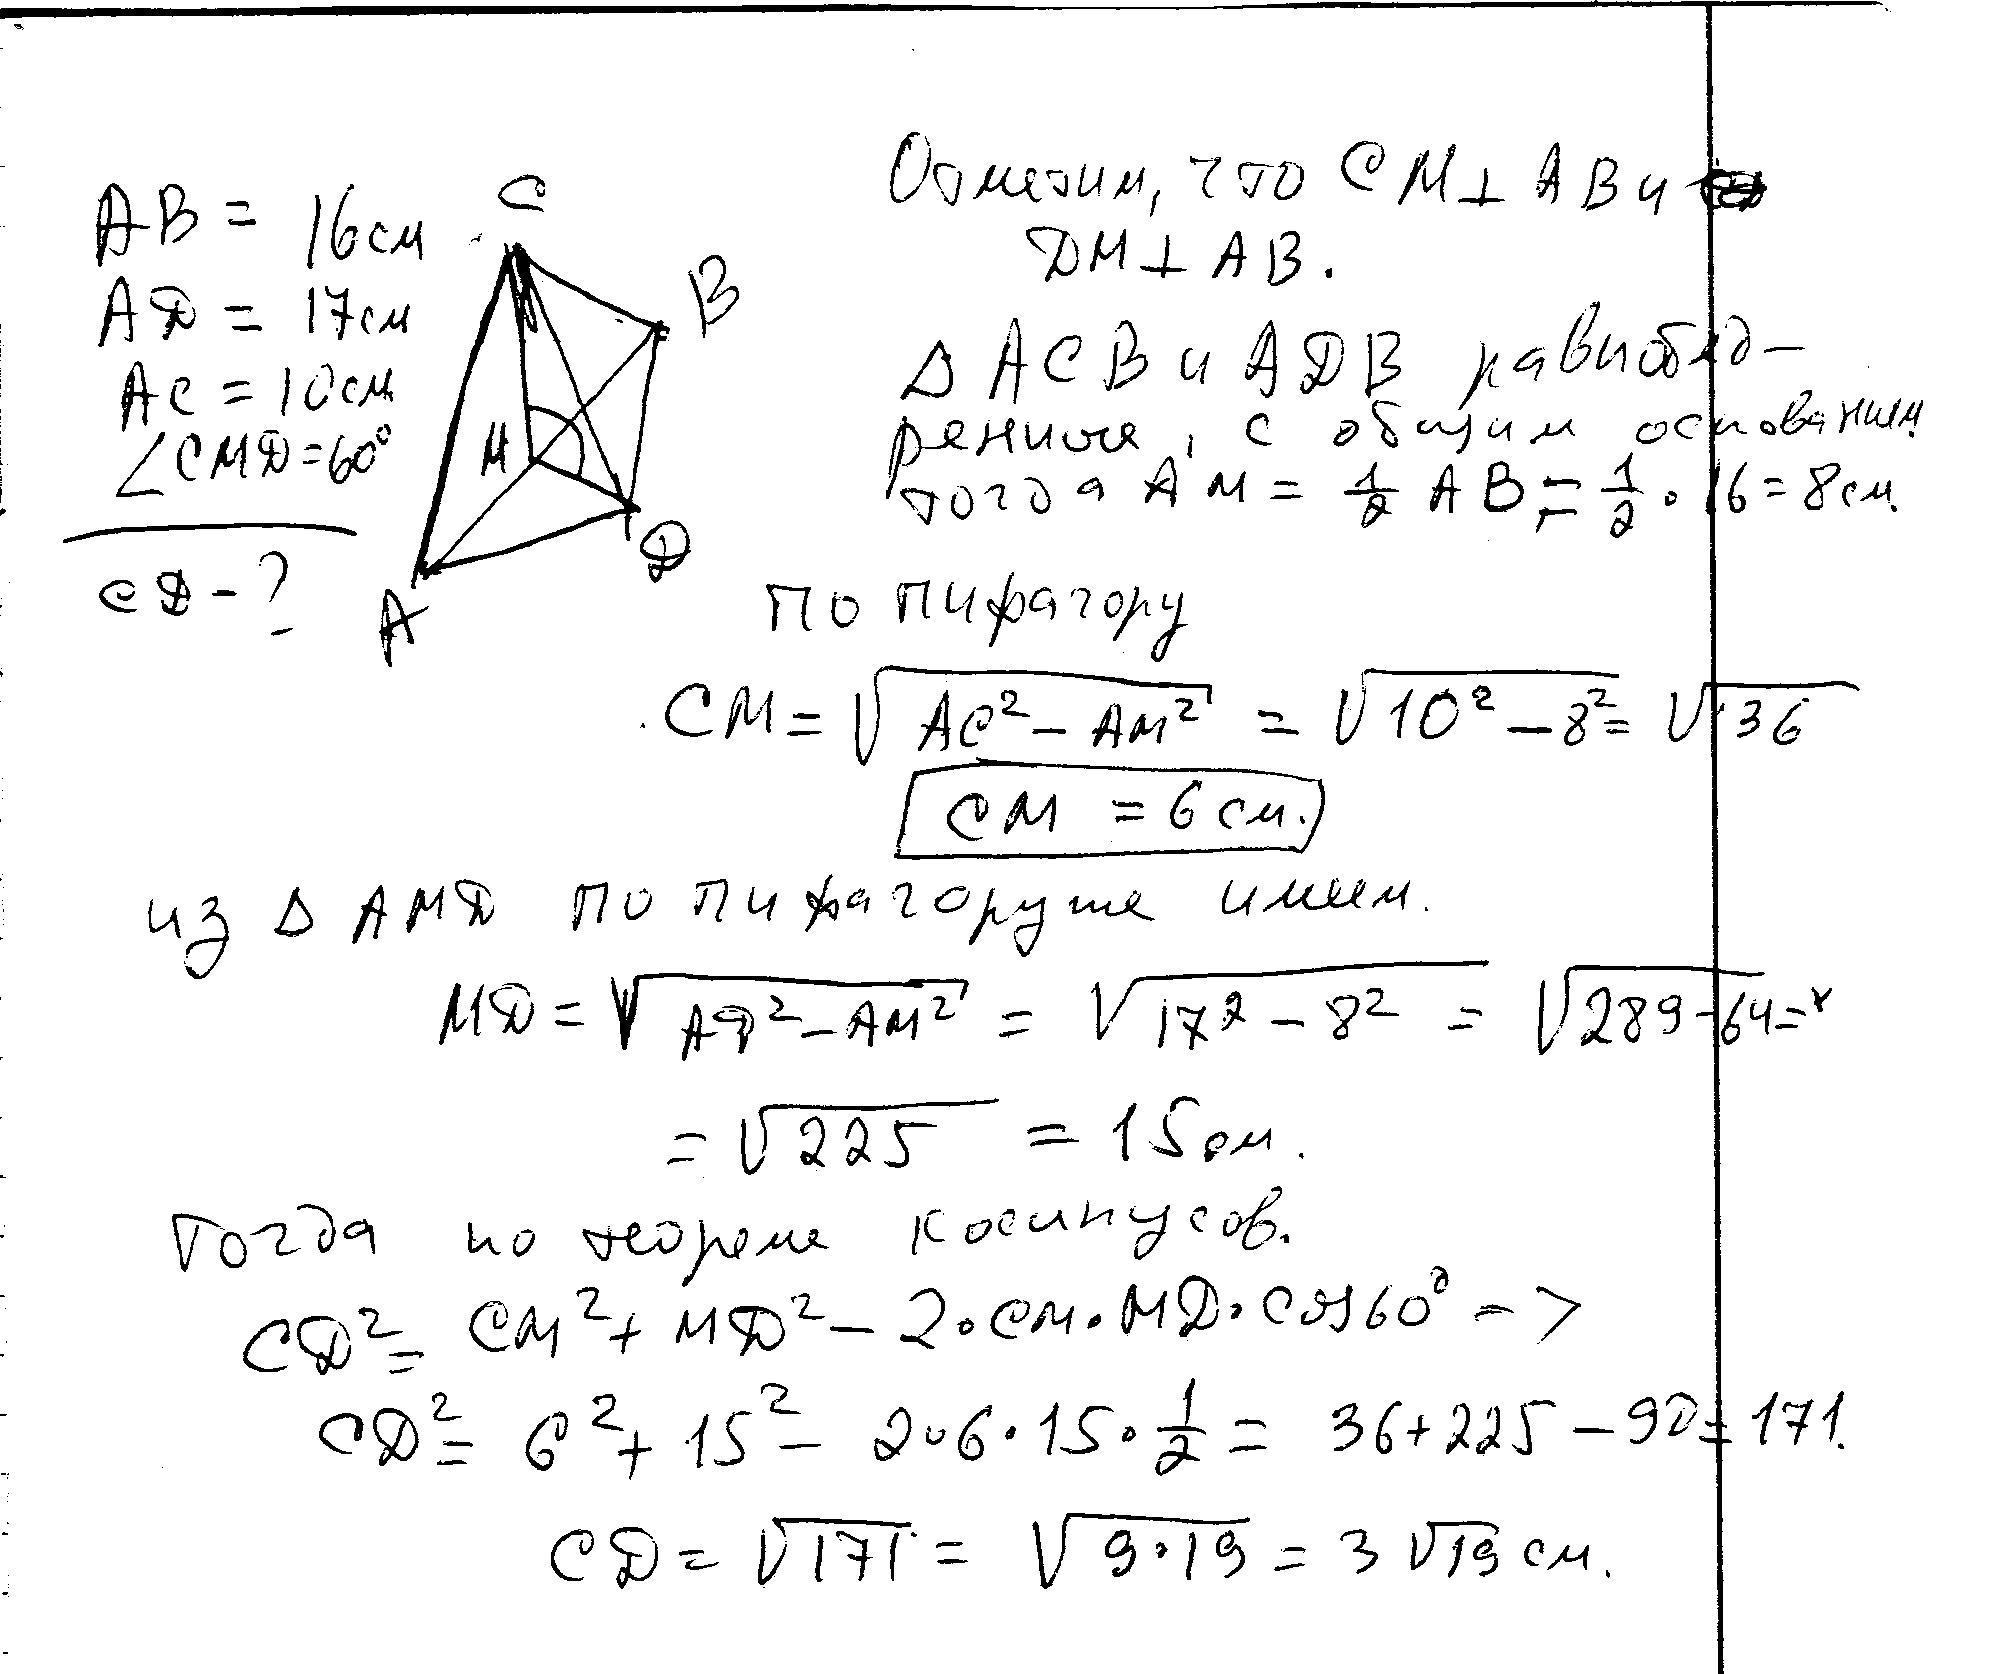 AB = 16см
AD = 17см
AC = 10см
∠CMD=60°
CD - ?
C
B
M
D
A
Отметим, что CM⊥AB и
DM⊥AB.
Δ ACB и ADB равнобед-
ренные, с общим основанием
тогда AM = 1/2 AB = 1/2 · 16 = 8см.
По пифагору
CM = √(AC² - AM²) = √(10² - 8²) = √36
CM = 6 см.
из Δ AMD по пифагору же имеем.
MD = √(AD² - AM²) = √(17² - 8²) = √(289-64) =
= √225 = 15см.
Тогда по теореме косинусов.
CD² = CM² + MD² - 2·CM·MD·cos60° ->
CD² = 6² + 15² - 2·6·15·1/2 = 36+225-90=171.
CD = √171 = √(9·19) = 3√19 см.